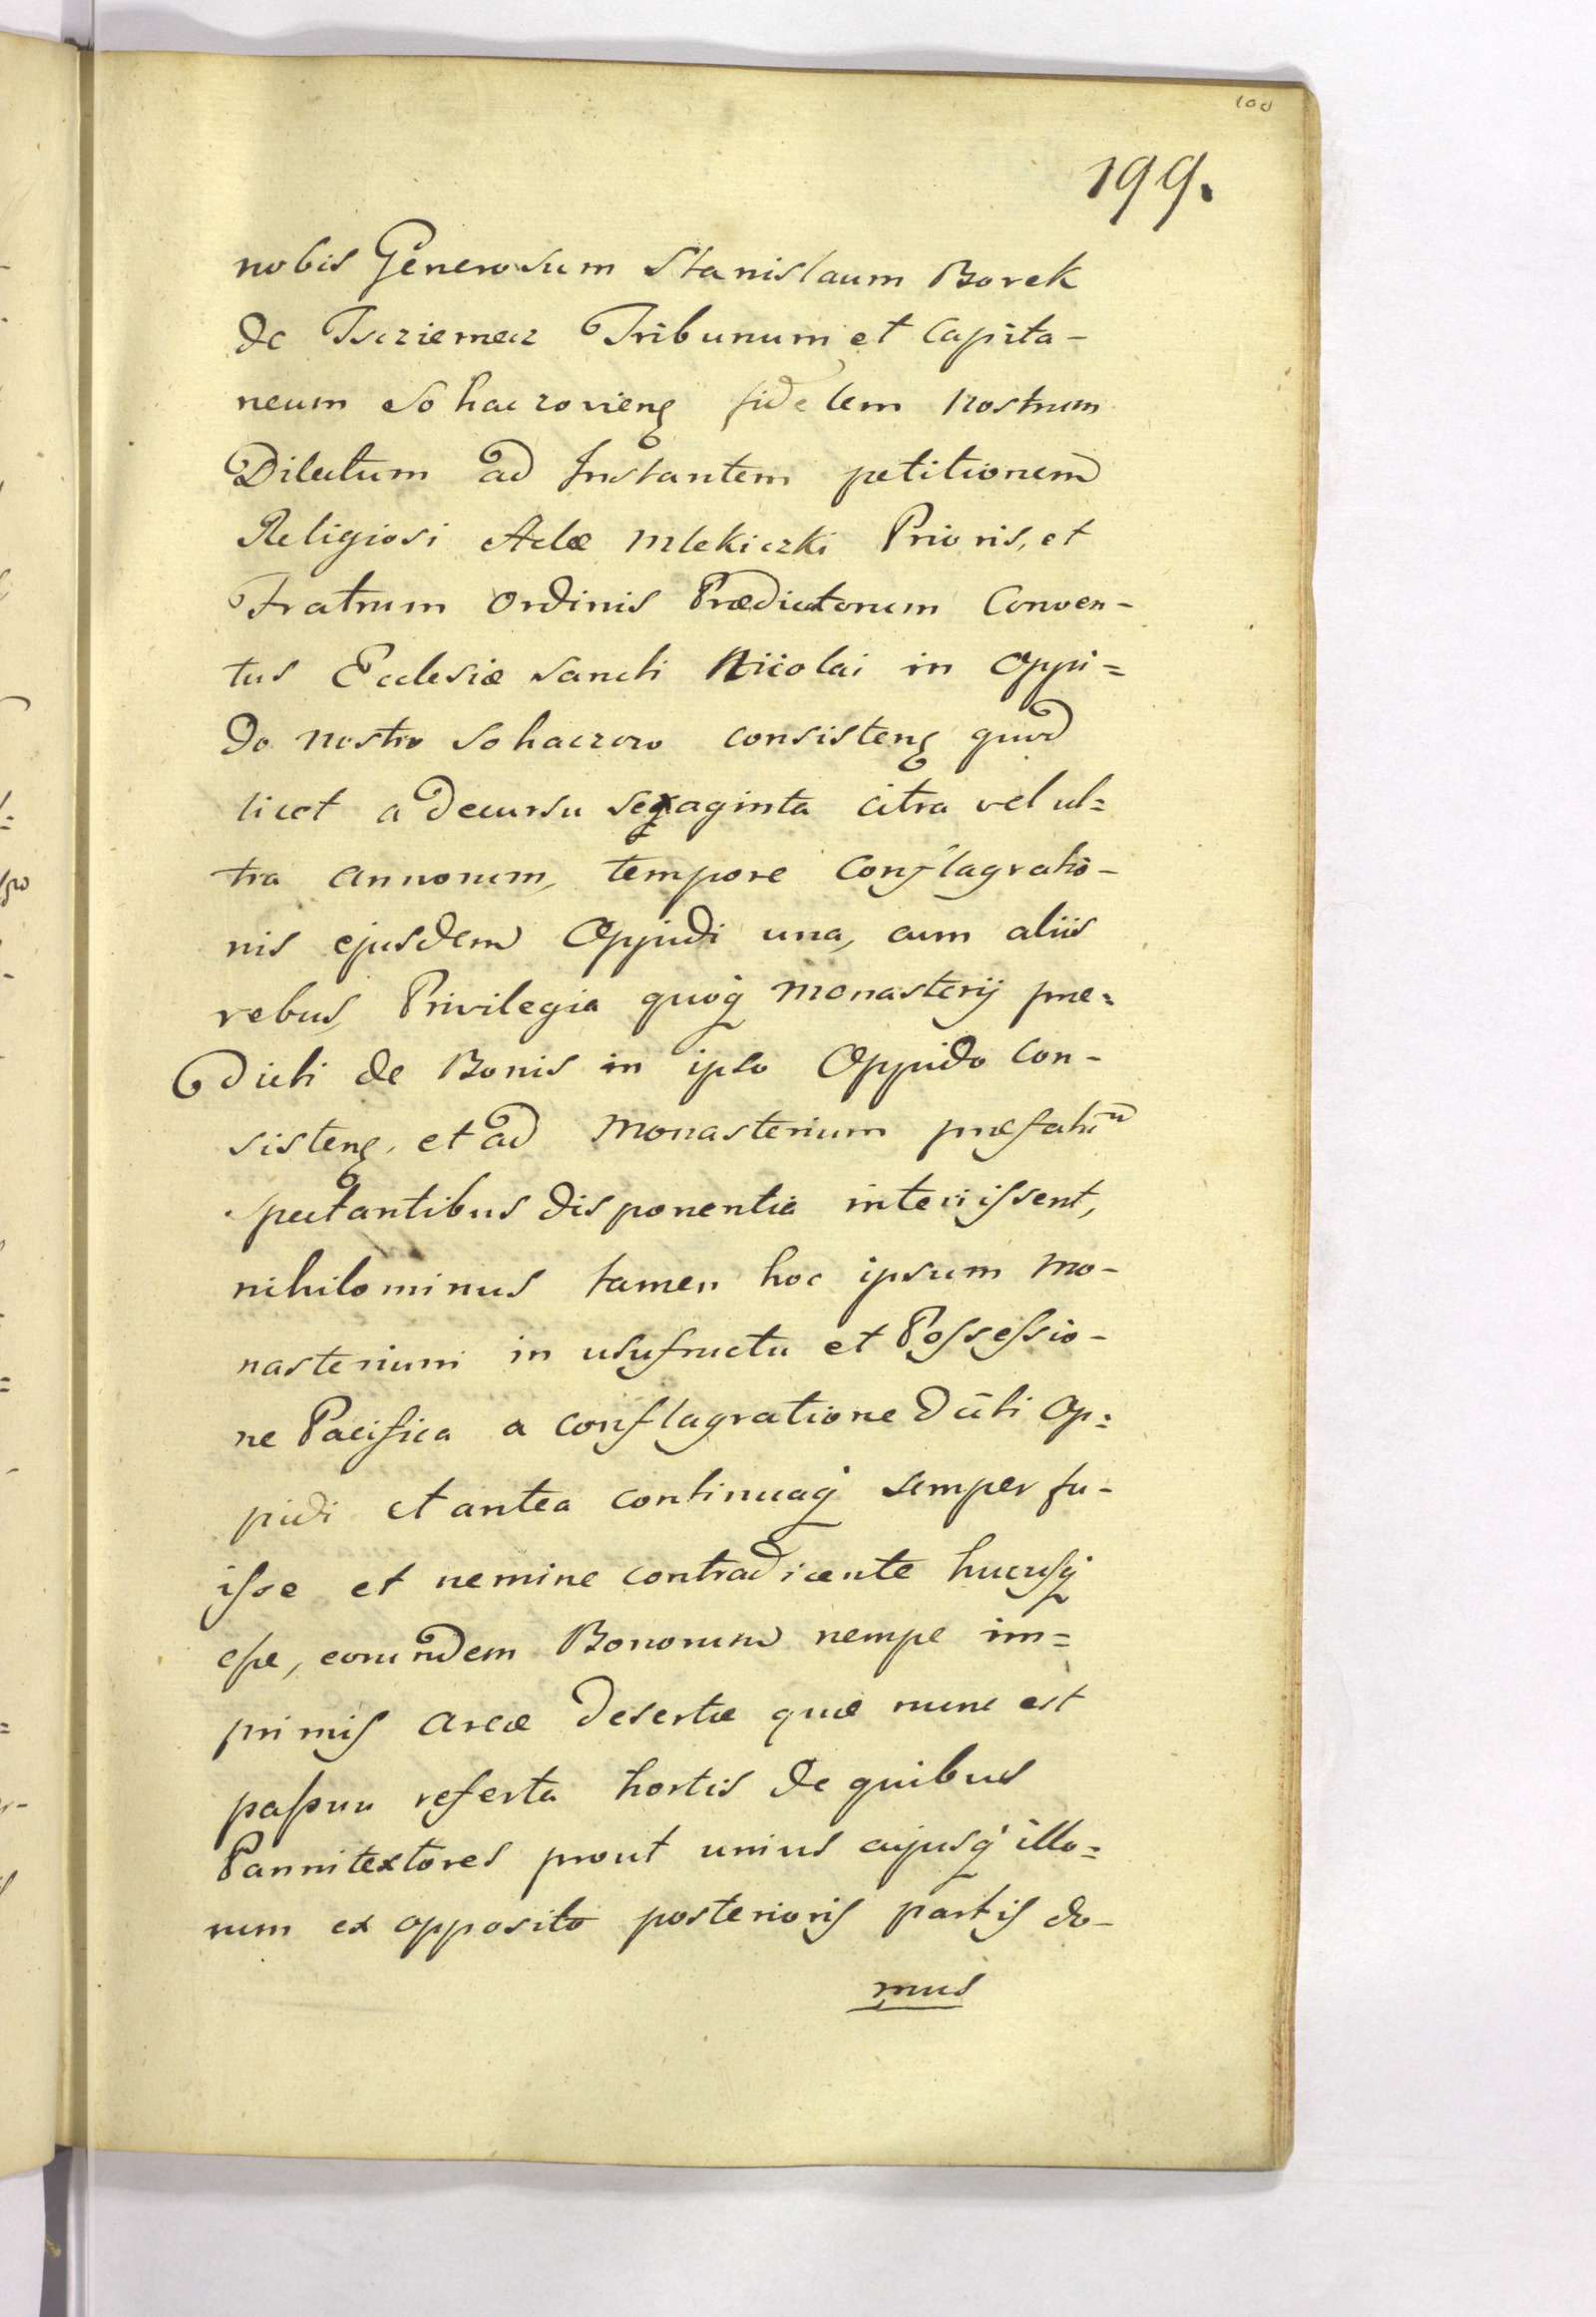 100
199.
nobis Generosum Stanislaum Borek
de Tscziemecz Tribunum et Capita-
neum Sohaczovienȩ fidelem nostrum
Dilectum ad Instantem petitionem
Religiosi Adæ Mlekiczki Prioris, et
Fratrum Ordinis Prædicatorum Conven-
tus Ecclesiæ Sancti Nicolai in Oppi=
do nostro Sohaczow consistenȩ quod
licet a decursu sexaginta citra vel ul=
tra annorum, tempore Conflagratio-
nis ejusdem Oppidi una, cum aliis
rebus, Privilegia quoq Monasterij præ=
dicti de Bonis in ipso Oppido Con-
sistenȩ, et ad Monasterium præfatū
spectantibus disponentia interiissent,
nihilominus tamen hoc ipsum Mo-
nasterium in usufructu et Possessio-
ne Pacifica a conflagratione dicti Op=
pidi et antea continuaq semper fu-
isse et nemine contradicente hucusq
esse, eorundem Bonorum nempe im=
primis Areæ desertæ quæ nunc est
referta hortis de quibus
Pannitextores prout unius cujusq illo=
rum ex opposito posterioris partis do-
mus